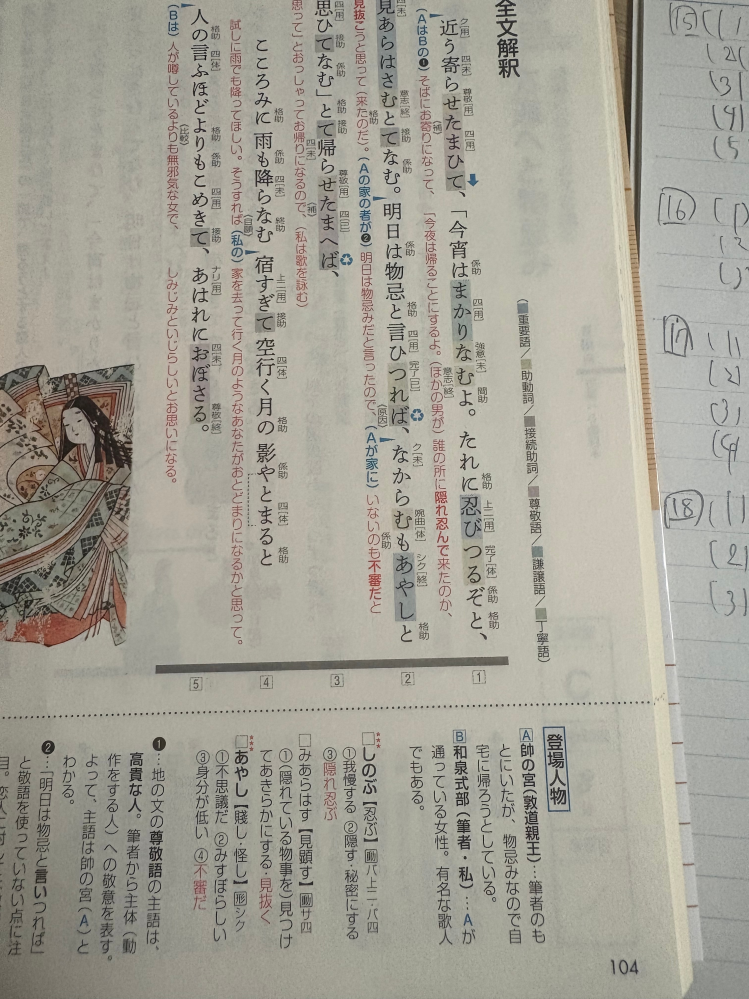 全文解釈
（重要語／助動詞／接続助詞／尊敬語／謙譲語／丁寧語）
近う寄らせたまひて、「今宵はまかりなむよ。たれに忍びつるぞと、
ク［用］ 四［未］ 尊敬［用］ 四［用］ 係助 四［用］ 強意［未］ 意志［終］ 間助 格助 上二［用］ 完了［体］ 係助 格助
（AはBの❶）そばにお寄りになって、「今夜は帰ることにするよ。（ほかの男が）誰の所に隠れ忍んで来たのか、
（補）
見あらはさむとてなむ。明日は物忌と言ひつれば、なからむもあやしと
意志［終］ 格助 接助 係助 係助 格助 四［用］ 完了［已］ ク［未］ 婉曲［体］ 係助 シク［終］ 格助
見抜こうと思って（来たのだ）。（Aの家の者が❷）明日は物忌みだと言ったので、（Aが家に）いないのも不審だと
（原因）
思ひてなむ」とて帰らせたまへば、
四［用］ 接助 係助 格助 接助 四［未］ 尊敬［用］ 四［已］
思って」とおっしゃってお帰りになるので、（私は歌を詠む）
（補）
こころみに雨も降らなむ宿すぎて空行く月の影やとまると
格助 係助 四［未］ 終助 上二［用］ 接助 四［体］ 格助 係助 四［体］ 格助
試しに雨でも降ってほしい。そうすれば（私の）家を去って行く月のようなあなたがおとどまりになるかと思って。
（自願）
人の言ふほどよりもこめきて、あはれにおぼさる。
格助 四［体］ 格助 係助 四［用］ 接助 ナリ［用］ 四［未］ 尊敬［終］
（Bは）人が噂しているよりも無邪気な女で、しみじみといじらしいとお思いになる。
（比較）
1
2
3
4
5
登場人物
A帥の宮（敦道親王）…筆者のも
とにいたが、物忌みなので自
宅に帰ろうとしている。
B和泉式部（筆者・私）…Aが
通っている女性。有名な歌人
でもある。
□しのぶ【忍ぶ】動バ上二・バ四
①我慢する ②隠す・秘密にする
③隠れ忍ぶ
□みあらはす【見顕す】動サ四
①（隠れている物事を）見つけ
てあきらかにする・見抜く
***
□あやし【賤し・怪し】形シク
①不思議だ ②みすぼらしい
③身分が低い ④不審だ
❶…地の文の尊敬語の主語は、
高貴な人。筆者から主体（動
作をする人）への敬意を表す。
よって、主語は帥の宮（A）と
わかる。
❷…「明日は物忌と言いつれば」
と敬語を使っていない点に注
104
15 (1)
(2)
(3)
(4)
(5
16 (1)
(2
17 (1)
(2)
(3)
(4
18 (1)
(2)
(3)